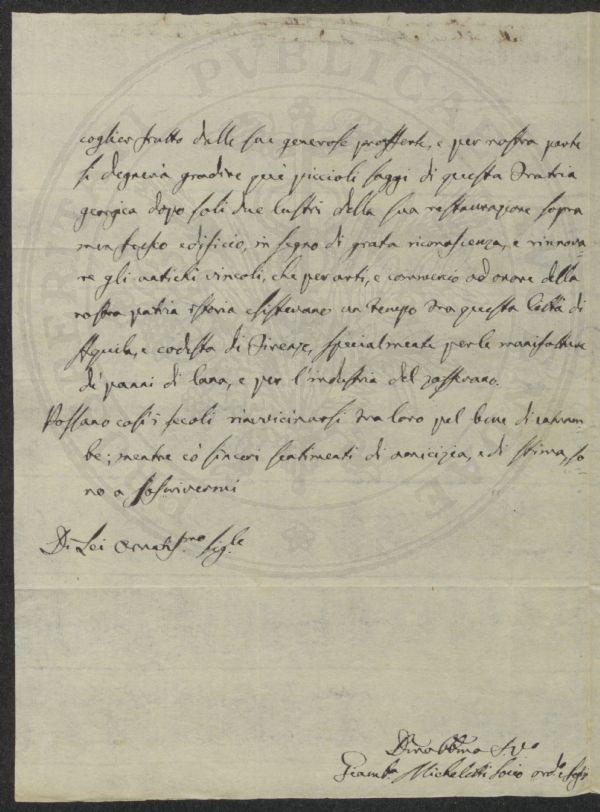 coglier frutto delle sue generose profferte, e per nostra parte
si degnerà gradire que' piccioli saggi di questa Patria
georgica dopo soli due lustri della sua restaurazione sopra
edificio, in segno di grata riconoscenza, e rinnova=
re gli antichi vincoli, che per arti, e commercio ad onore della
nostra patria istoria esistevano un tempo tra questa Città di
Aquila, e codesta di Firenze, specialmente per le manifatture
di panni di lana, e per l'industria del zafferano.
Possano così i secoli riavvicinarsi tra loro pel bene di entram
be; mentre cò sinceri sentimenti di amicizia, e di stima, so=
no a soscrivermi
Di Lei Ornatis.mo Sig.le
Giamb.a Micheletti Socio ord.o